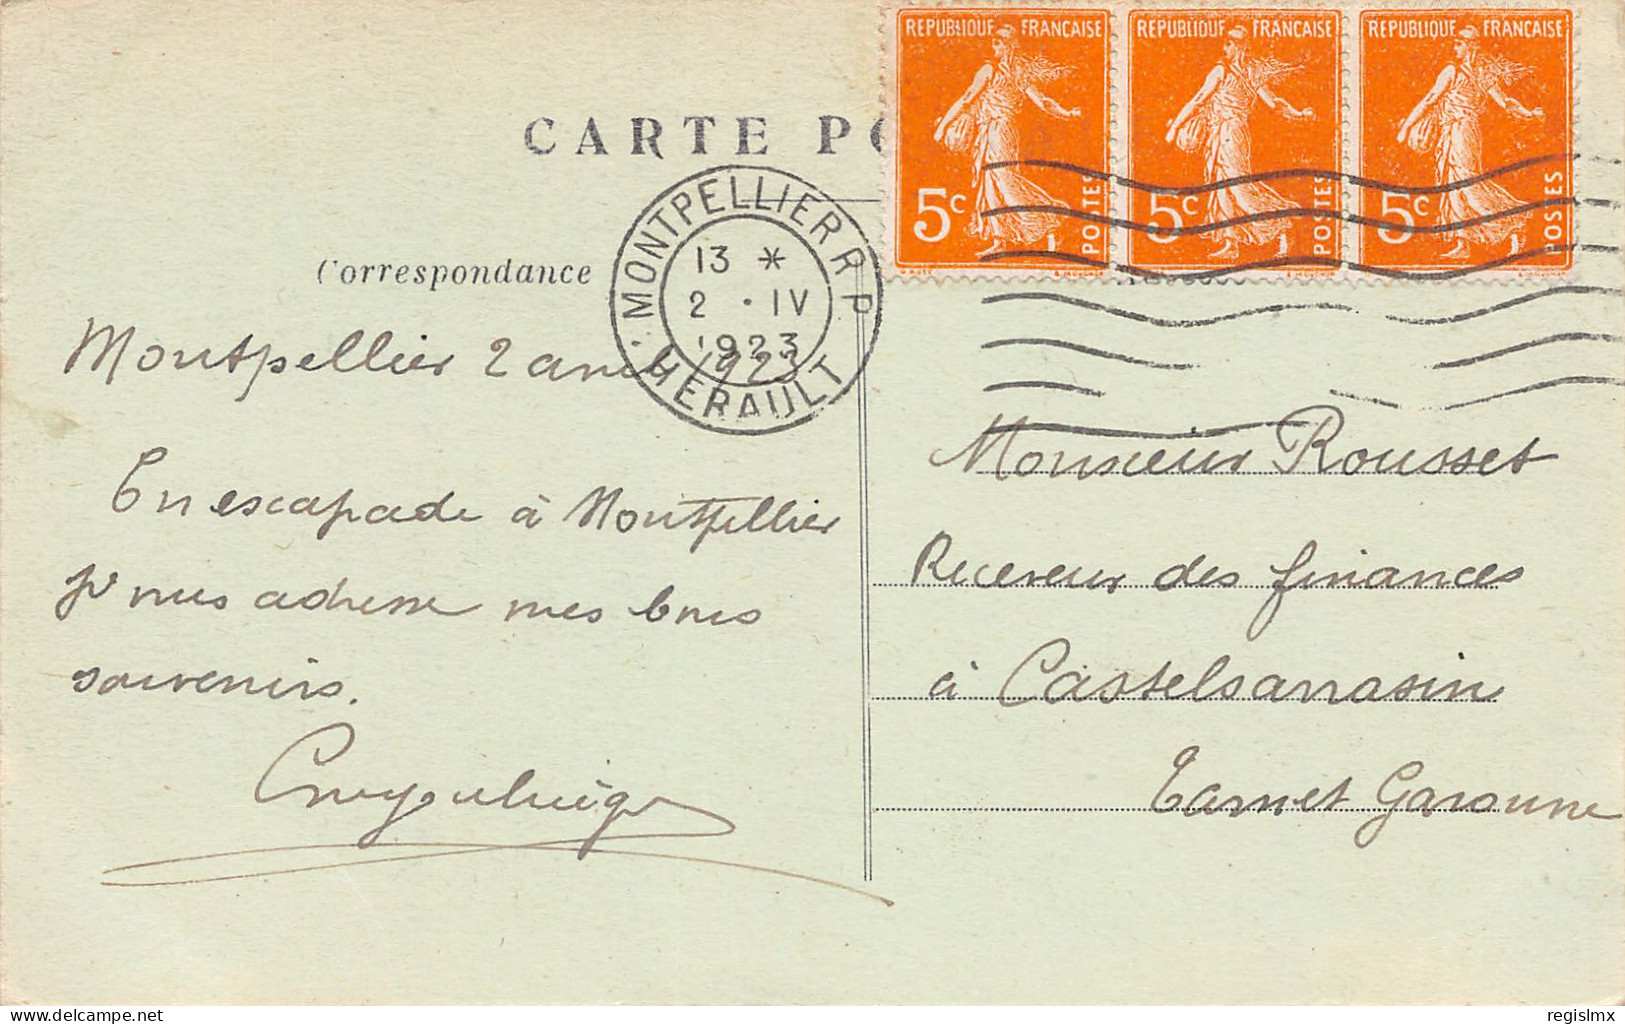 CARTE PO
RÉPUBLIQUE FRANÇAISE
5c
POSTES
RÉPUBLIQUE FRANÇAISE
5c
POSTES
RÉPUBLIQUE FRANÇAISE
5c
POSTES
MONTPELLIER R.P.
13 *
2 · IV
1923
HERAULT
Correspondance
Montpellier 2 avril 1923
En escapade à Montpellier
je vous adresse mes bons
souvenirs.
Monsieur Rousset
Receveur des finances
à Castelsarrasin
Tarn et Garonne
delcampe.net
regislmx